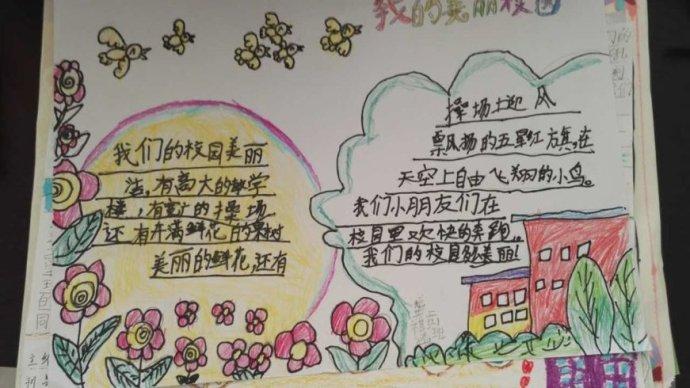 我的美丽校园
我们的校园美丽
洁,有高大的教学
楼,有宽广的操场
还有开满鲜花的果树
美丽的鲜花,还有
操场上迎风
飘风扬的五星红旗,在
天空上自由飞翔的小鸟。
我们小朋友们在
校园里欢快的奔跑。
我们的校园多美丽!